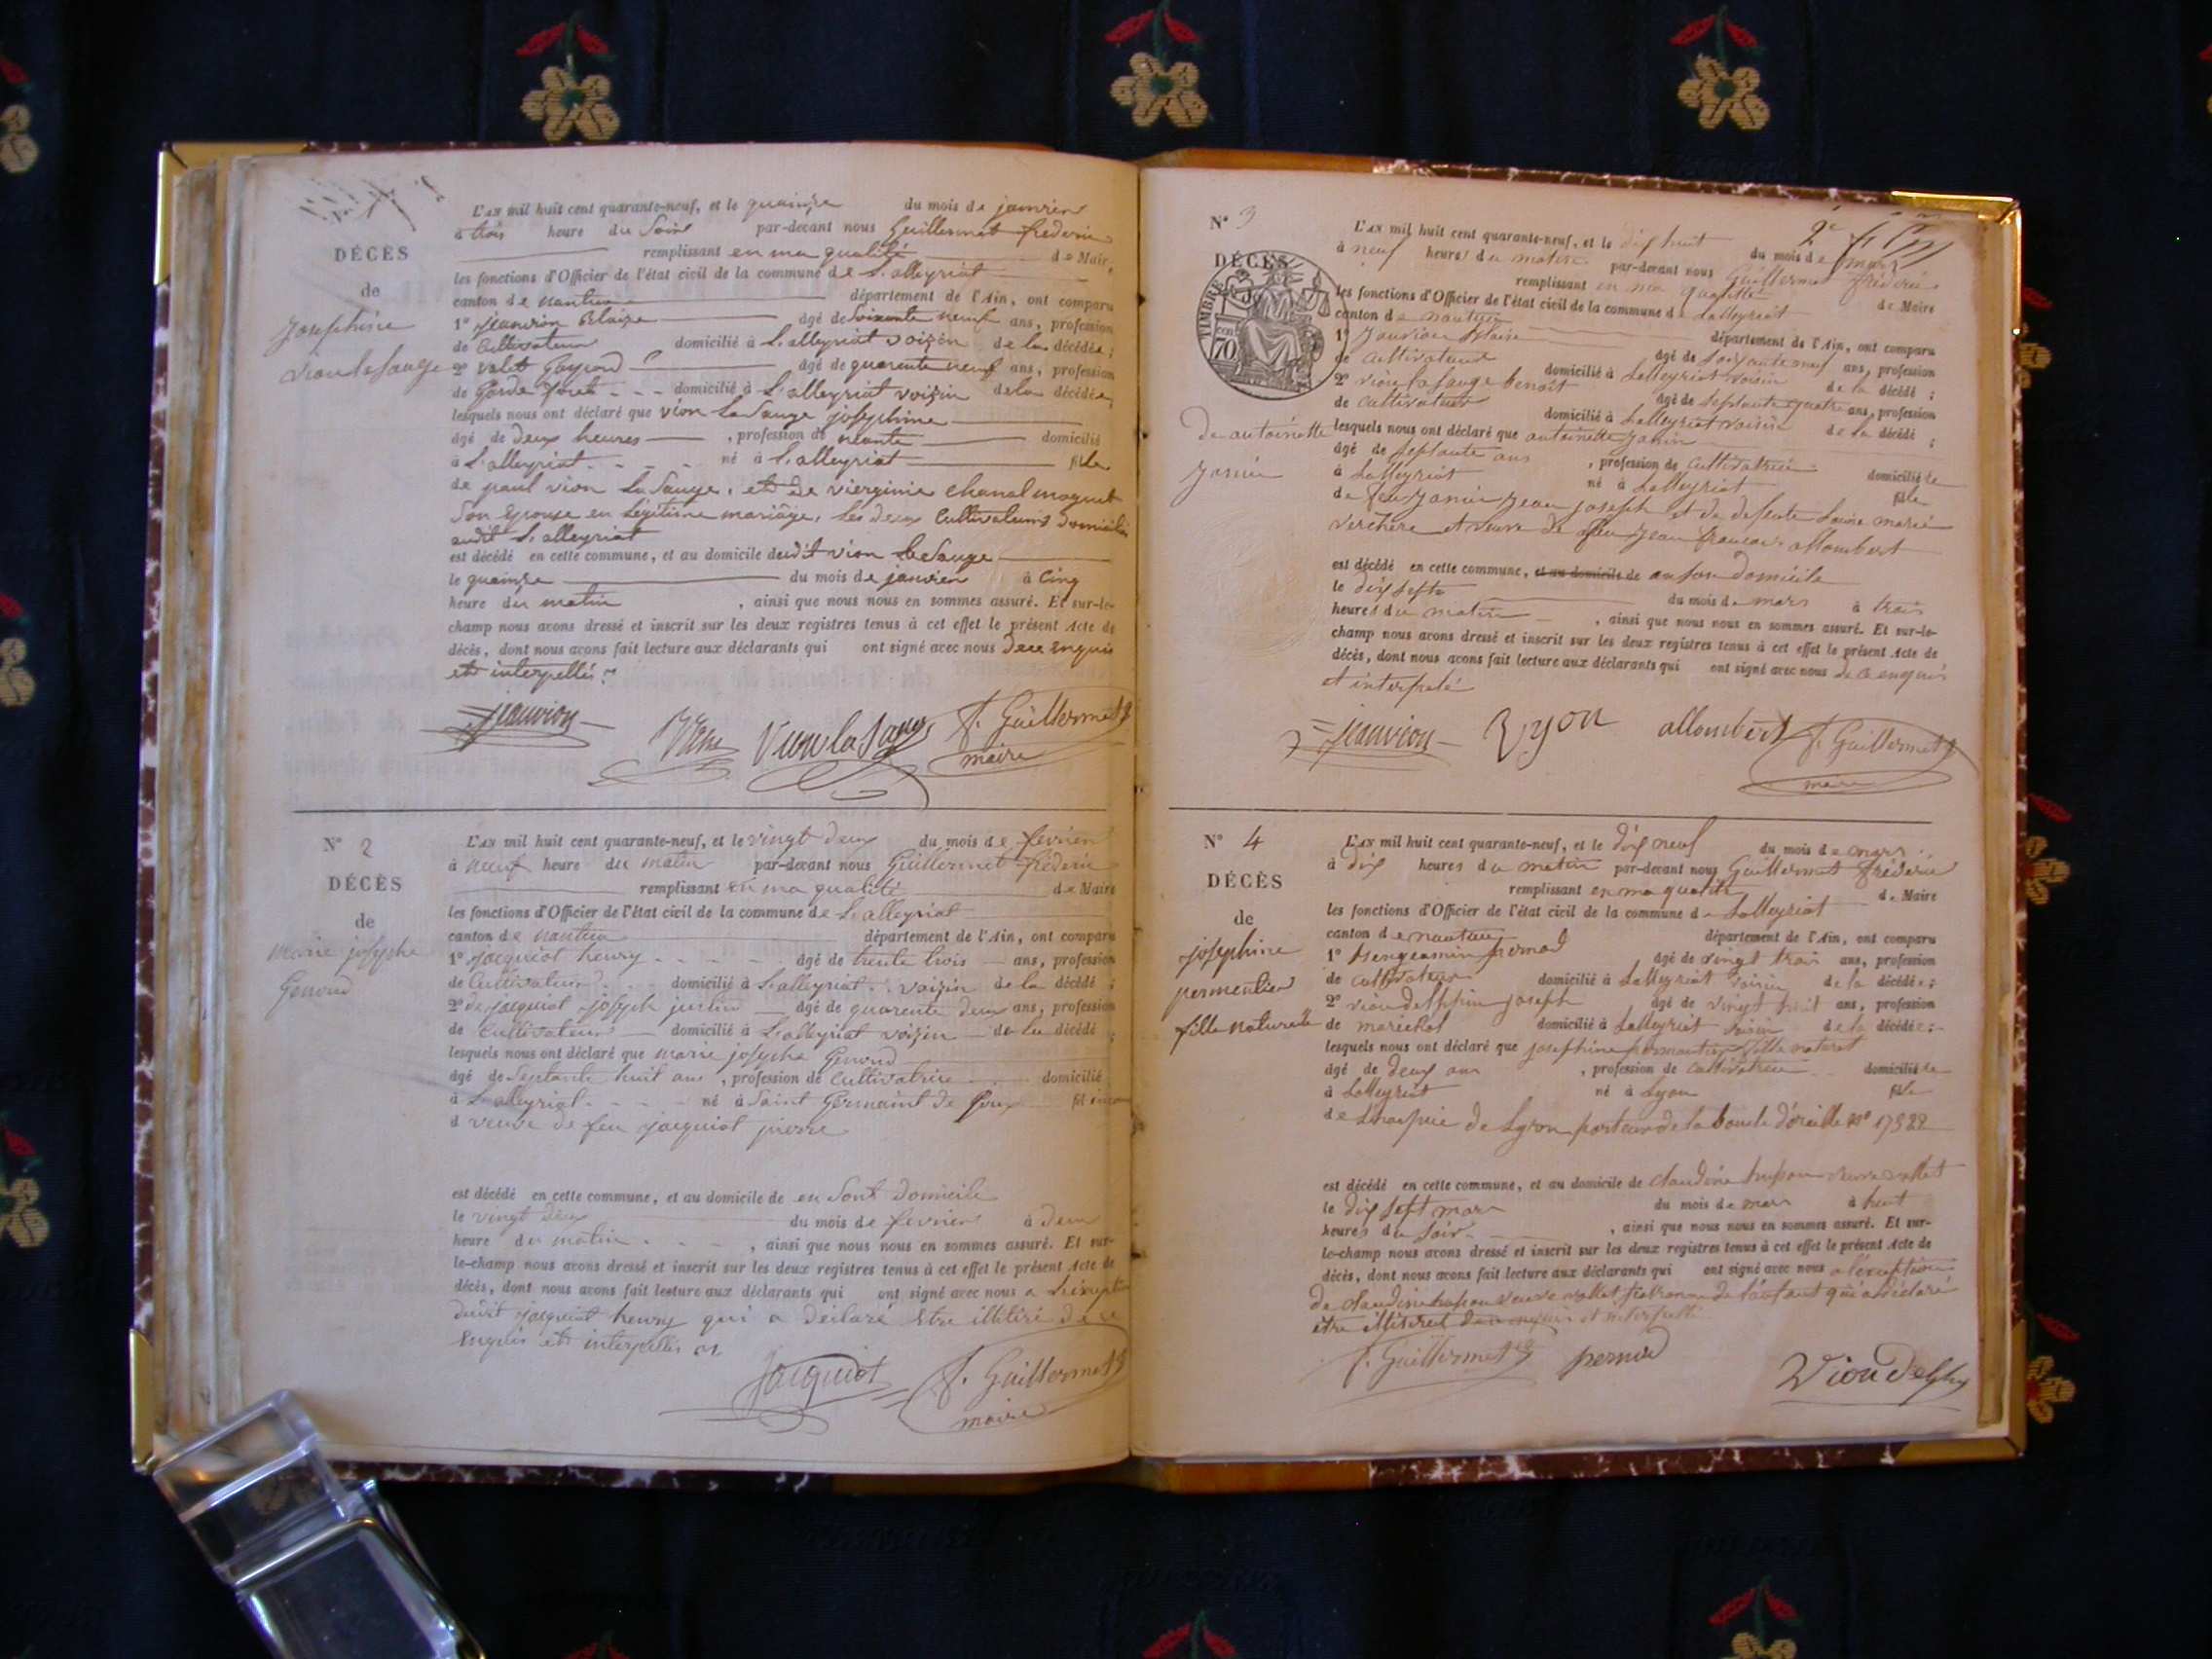 DÉCÈS
de
Josephine
Vion la Sauge
L'AN mil huit cent quarante-neuf, et le quainze du mois de janvier
à trois heure du Soire par-devant nous Guillermet frederic
remplissant en ma qualité de Maire
les fonctions d'Officier de l'état civil de la commune de L'alleyriat
canton de nantua département de l'Ain, ont comparu
1° jeanvion Blaize âgé de soixante neuf ans, profession
de Cultivateur domicilié à L'alleyriat voizin de la décédée;
2° valet âgé de quarente neuf ans, profession
de Garde foret domicilié à L'alleyriat voizin de la décédée,
lesquels nous ont déclaré que vion La Sauge josephine
âgé de Deux heures, profession de néante domicilié
à L'alleyriat né à L'alleyriat fille
de paul vion La Sauge, et De vierginie Chanal
Son Epouse en Legitime mariâge, les deux Cultivateurs Domicilies
audit L'alleyriat
est décédé en cette commune, et au domicile dudit vion La Sauge
le quainze du mois de janvier à Cinq
heure du matin, ainsi que nous nous en sommes assuré. Et sur-le-
champ nous avons dressé et inscrit sur les deux registres tenus à cet effet le présent Acte de
décès, dont nous avons fait lecture aux déclarants qui ont signé avec nous Dece enquis
et interpellés
jeanvion Vion la Sauge f. Guillermet
maire
N° 2
DÉCÈS
de
marie josephe
Genoud
L'AN mil huit cent quarante-neuf, et le vingt deux du mois de fevrier
à neuf heure du matin par-devant nous Guillermet frederic
remplissant en ma qualité de Maire
les fonctions d'Officier de l'état civil de la commune de L'alleyriat
canton de nantua département de l'Ain, ont comparu
1° Jacquiot henry âgé de trente trois ans, profession
de Cultivateur domicilié à L'alleyriat voizin de la décédé;
2° de jacquiot joseph justin âgé de quarente Deux ans, profession
de Cultivateur domicilié à L'alleyriat voizin de la décédé,
lesquels nous ont déclaré que marie josephe Genoud
âgé de Septante huit ans, profession de Cultivatrice domicilié
à L'alleyriat né à Saint Germaint de Joux fil
d veuve de feu jacquiot pierre
est décédé en cette commune, et au domicile de en Sont Domicile
le vingt deux du mois de fevrier à deux
heure du matin, ainsi que nous nous en sommes assuré. Et sur-
le-champ nous avons dressé et inscrit sur les deux registres tenus à cet effet le présent Acte de
décès, dont nous avons fait lecture aux déclarants qui ont signé avec nous a L'éxception
dudit jacquiot henry qui a déclaré Etre illitéré de ce
Enquis et interpellés
Jacquiot f. Guillermet
maire
N° 3
DÉCÈS
TIMBRE
70
De antoinette
Janin
L'AN mil huit cent quarante-neuf, et le dix huit du mois de mars
à neuf heures du matin par-devant nous Guillermet frédéric
remplissant en ma qualitté de Maire
les fonctions d'Officier de l'état civil de la commune de Lalleyriat
canton de nantua département de l'Ain, ont comparu
1° Janvion Blaise âgé de soixante neuf ans, profession
de cultivateur domicilié à Lalleyriat voisin de la décédé;
2° vion la sauge benoit âgé de septante quatre ans, profession
de cultivateur domicilié à Lalleyriat voisin de la décédé;
lesquels nous ont déclaré que antoinette Janin
âgé de septante ans, profession de cultivatrice domiciliée
à Lalleyriat né à Lalleyriat fille
de feu Janin Jean joseph et de defente Louise marie
verchere et veuve de feu Jean francois allombert
est décédé en cette commune, et au domicile de an son domicile
le dix septe du mois de mars à trois
heures du matin, ainsi que nous nous en sommes assuré. Et sur-le-
champ nous avons dressé et inscrit sur les deux registres tenus à cet effet le présent Acte de
décès, dont nous avons fait lecture aux déclarants qui ont signé avec nous de ce enquis
et interpelé
jeanvion Vyon allombert f. Guillermet
maire
N° 4
DÉCÈS
de
josephine
permentier
fille naturelle
L'AN mil huit cent quarante-neuf, et le dix neuf du mois de mars
à dix heures du matin par-devant nous Guillermet frédéric
remplissant en ma qualité de Maire
les fonctions d'Officier de l'état civil de la commune de Lalleyriat
canton de nantua département de l'Ain, ont comparu
1° Bengeamin pernod âgé de vingt trois ans, profession
de cultivateur domicilié à Lalleyriat voisin de la décédée;
2° vion delphin joseph âgé de vingt huit ans, profession
de marechal domicilié à Lalleyriat voisin de la décédée;
lesquels nous ont déclaré que josephine permentier fille naturel
âgé de deux ans, profession de cultivatrice domiciliée
à Lalleyriat né à Lyon fille
de Lhospice de Lyon porteur de la boucle d'oreille N° 17522
est décédé en cette commune, et au domicile de claudine humbert veuve vallet
le dix sept mars du mois de mars à huit
heures du soir, ainsi que nous nous en sommes assuré. Et sur-
le-champ nous avons dressé et inscrit sur les deux registres tenus à cet effet le présent Acte de
décès, dont nous avons fait lecture aux déclarants qui ont signé avec nous a l'exception
de claudine veuve vallet patronne de l'enfant qui a déclaré
être illitéret de ce enquis et interpellé
f. Guillermet pernod Vion Delphin